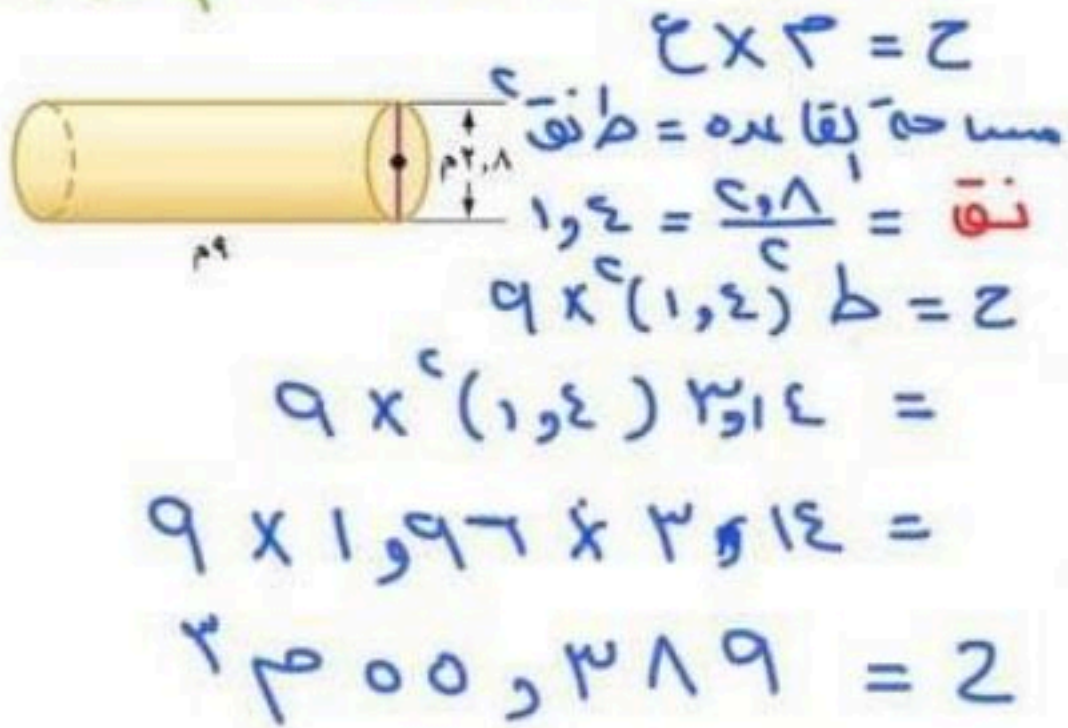 ح = م × ع
مساحة القاعدة = ط نق٢
٢,٨م
نق = ٢,٨ / ٢ = ١,٤
٩م
ح = ط (١,٤)٢ × ٩
= ٣,١٤ (١,٤)٢ × ٩
= ٣,١٤ × ١,٩٦ × ٩
ح = ٥٥,٣٨٩ م٣